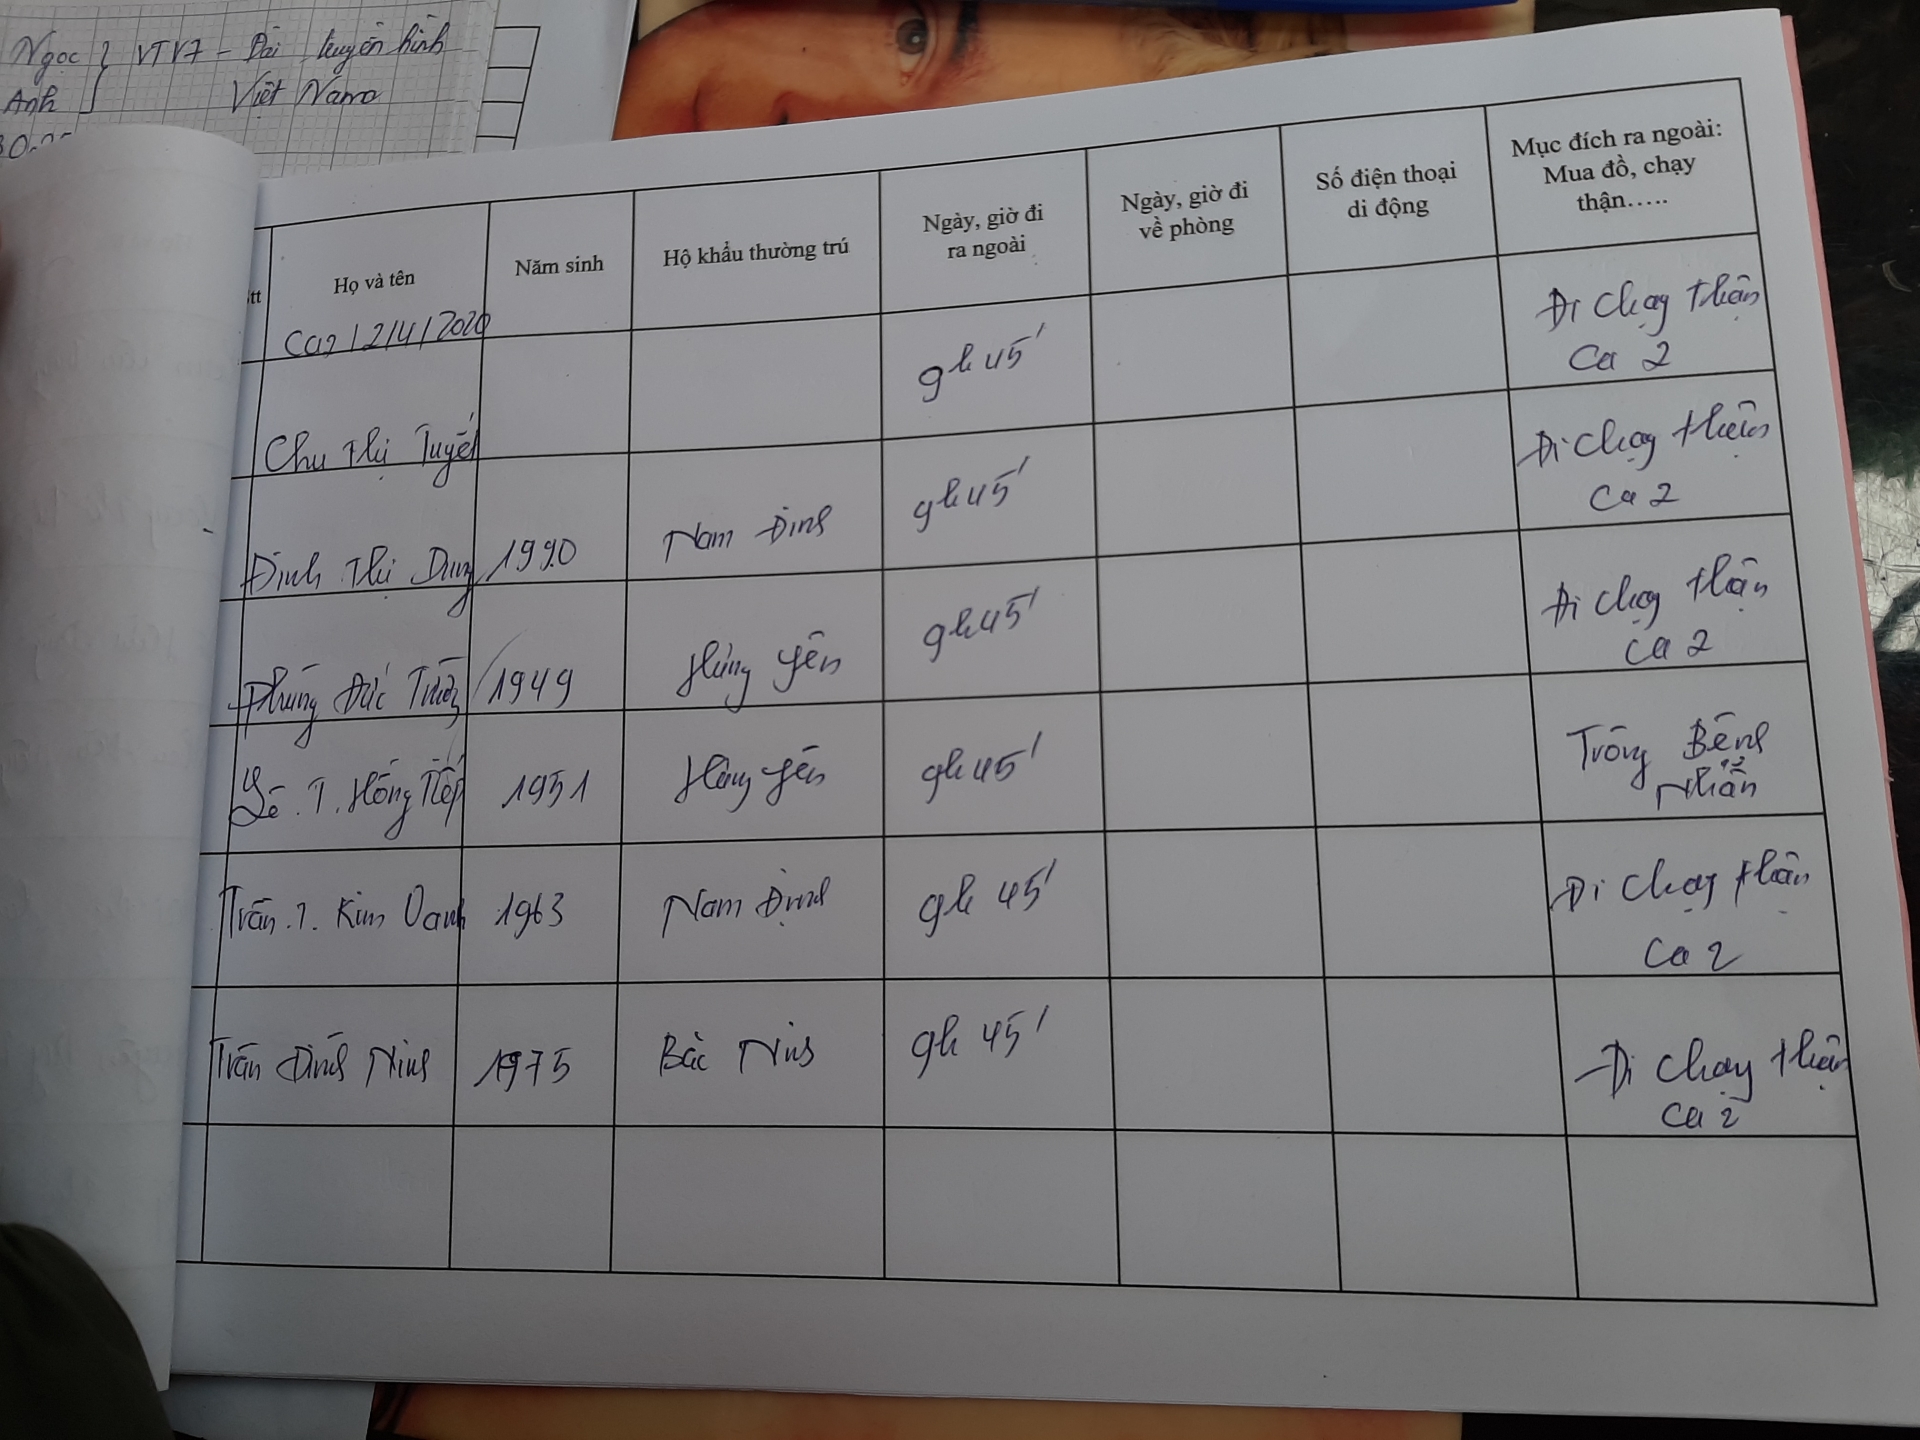 Ngọc } VTV7 - Đài truyền hình
Anh } Việt Nam
tt
Họ và tên
Năm sinh
Hộ khẩu thường trú
Ngày, giờ đi
ra ngoài
Ngày, giờ đi
về phòng
Số điện thoại
di động
Mục đích ra ngoài:
Mua đồ, chạy
thận.....
Ca 2 / 2/4/2020
Chu Thị Tuyết 9h45' Đi chạy thận
Ca 2
Đinh Thị Dung 1990 Nam Định 9h45' Đi chạy thận
Ca 2
Phùng Đức 1949 Hưng Yên 9h45' Đi chạy thận
Ca 2
Lê.T. Hồng Tiếp 1951 Hưng Yên 9h45' Trông Bệnh
Nhân
Trần.T. Kim Oanh 1963 Nam Định 9h 45' Đi chạy thận
Ca 2
Trần Đình Ninh 1975 Bắc Ninh 9h 45' Đi chạy thận
Ca 2